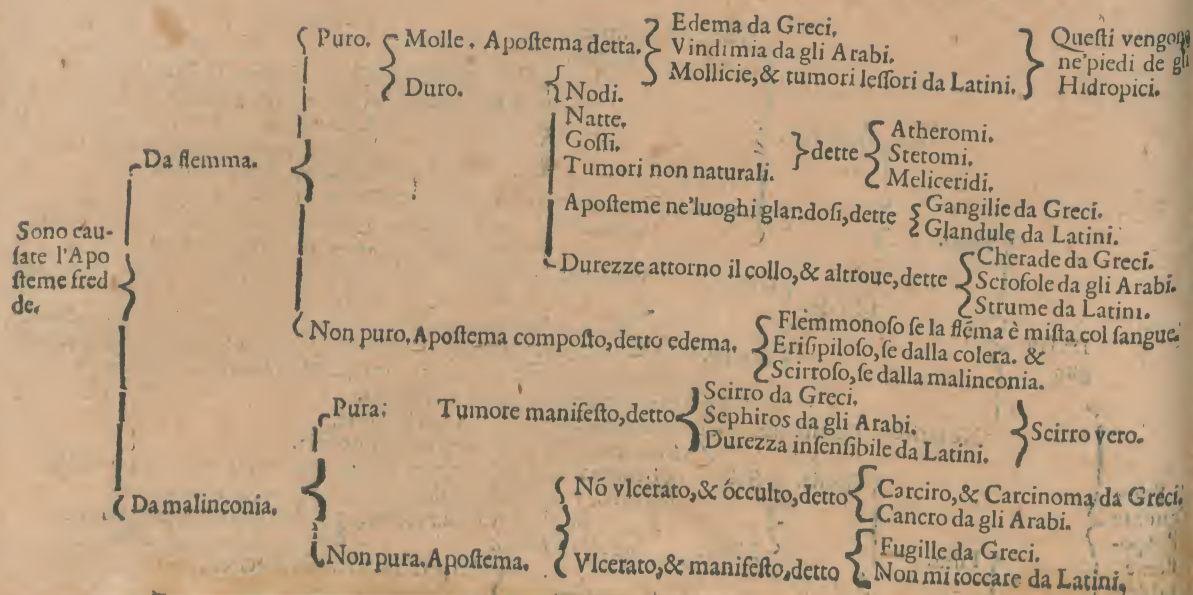 Sono cau-
ſate l'Apo
ſteme fred
de.
Da flemma.
Puro.
Molle. Apoſtema detta.
Edema da Greci.
Vindimia da gli Arabi.
Mollicie, & tumori leſſori da Latini.
Queſti vengono
ne'piedi de gli
Hidropici.
Duro.
Nodi.
Natte.
Goſſi.
Tumori non naturali.
dette
Atheromi.
Stetomi.
Meliceridi.
Apoſteme ne'luoghi glandoſi, dette
Gangilie da Greci.
Glandulę da Latini.
Durezze attorno il collo, & altroue, dette
Cherade da Greci.
Scrofole da gli Arabi.
Strume da Latini.
Non puro. Apoſtema compoſto, detto edema.
Flemmonoſo ſe la flēma è miſta col ſangue.
Eriſipiloſo, ſe dalla colera. &
Scirroſo, ſe dalla malinconia.
Da malinconia.
Pura:
Tumore manifeſto, detto
Scirro da Greci.
Sephiros da gli Arabi.
Durezza inſenſibile da Latini.
Scirro vero.
Non pura. Apoſtema.
Nó vlcerato, & ócculto, detto
Carciro, & Carcinoma da Greci.
Cancro da gli Arabi.
Vlcerato, & manifeſto, detto
Fugille da Greci.
Non mi toccare da Latini.